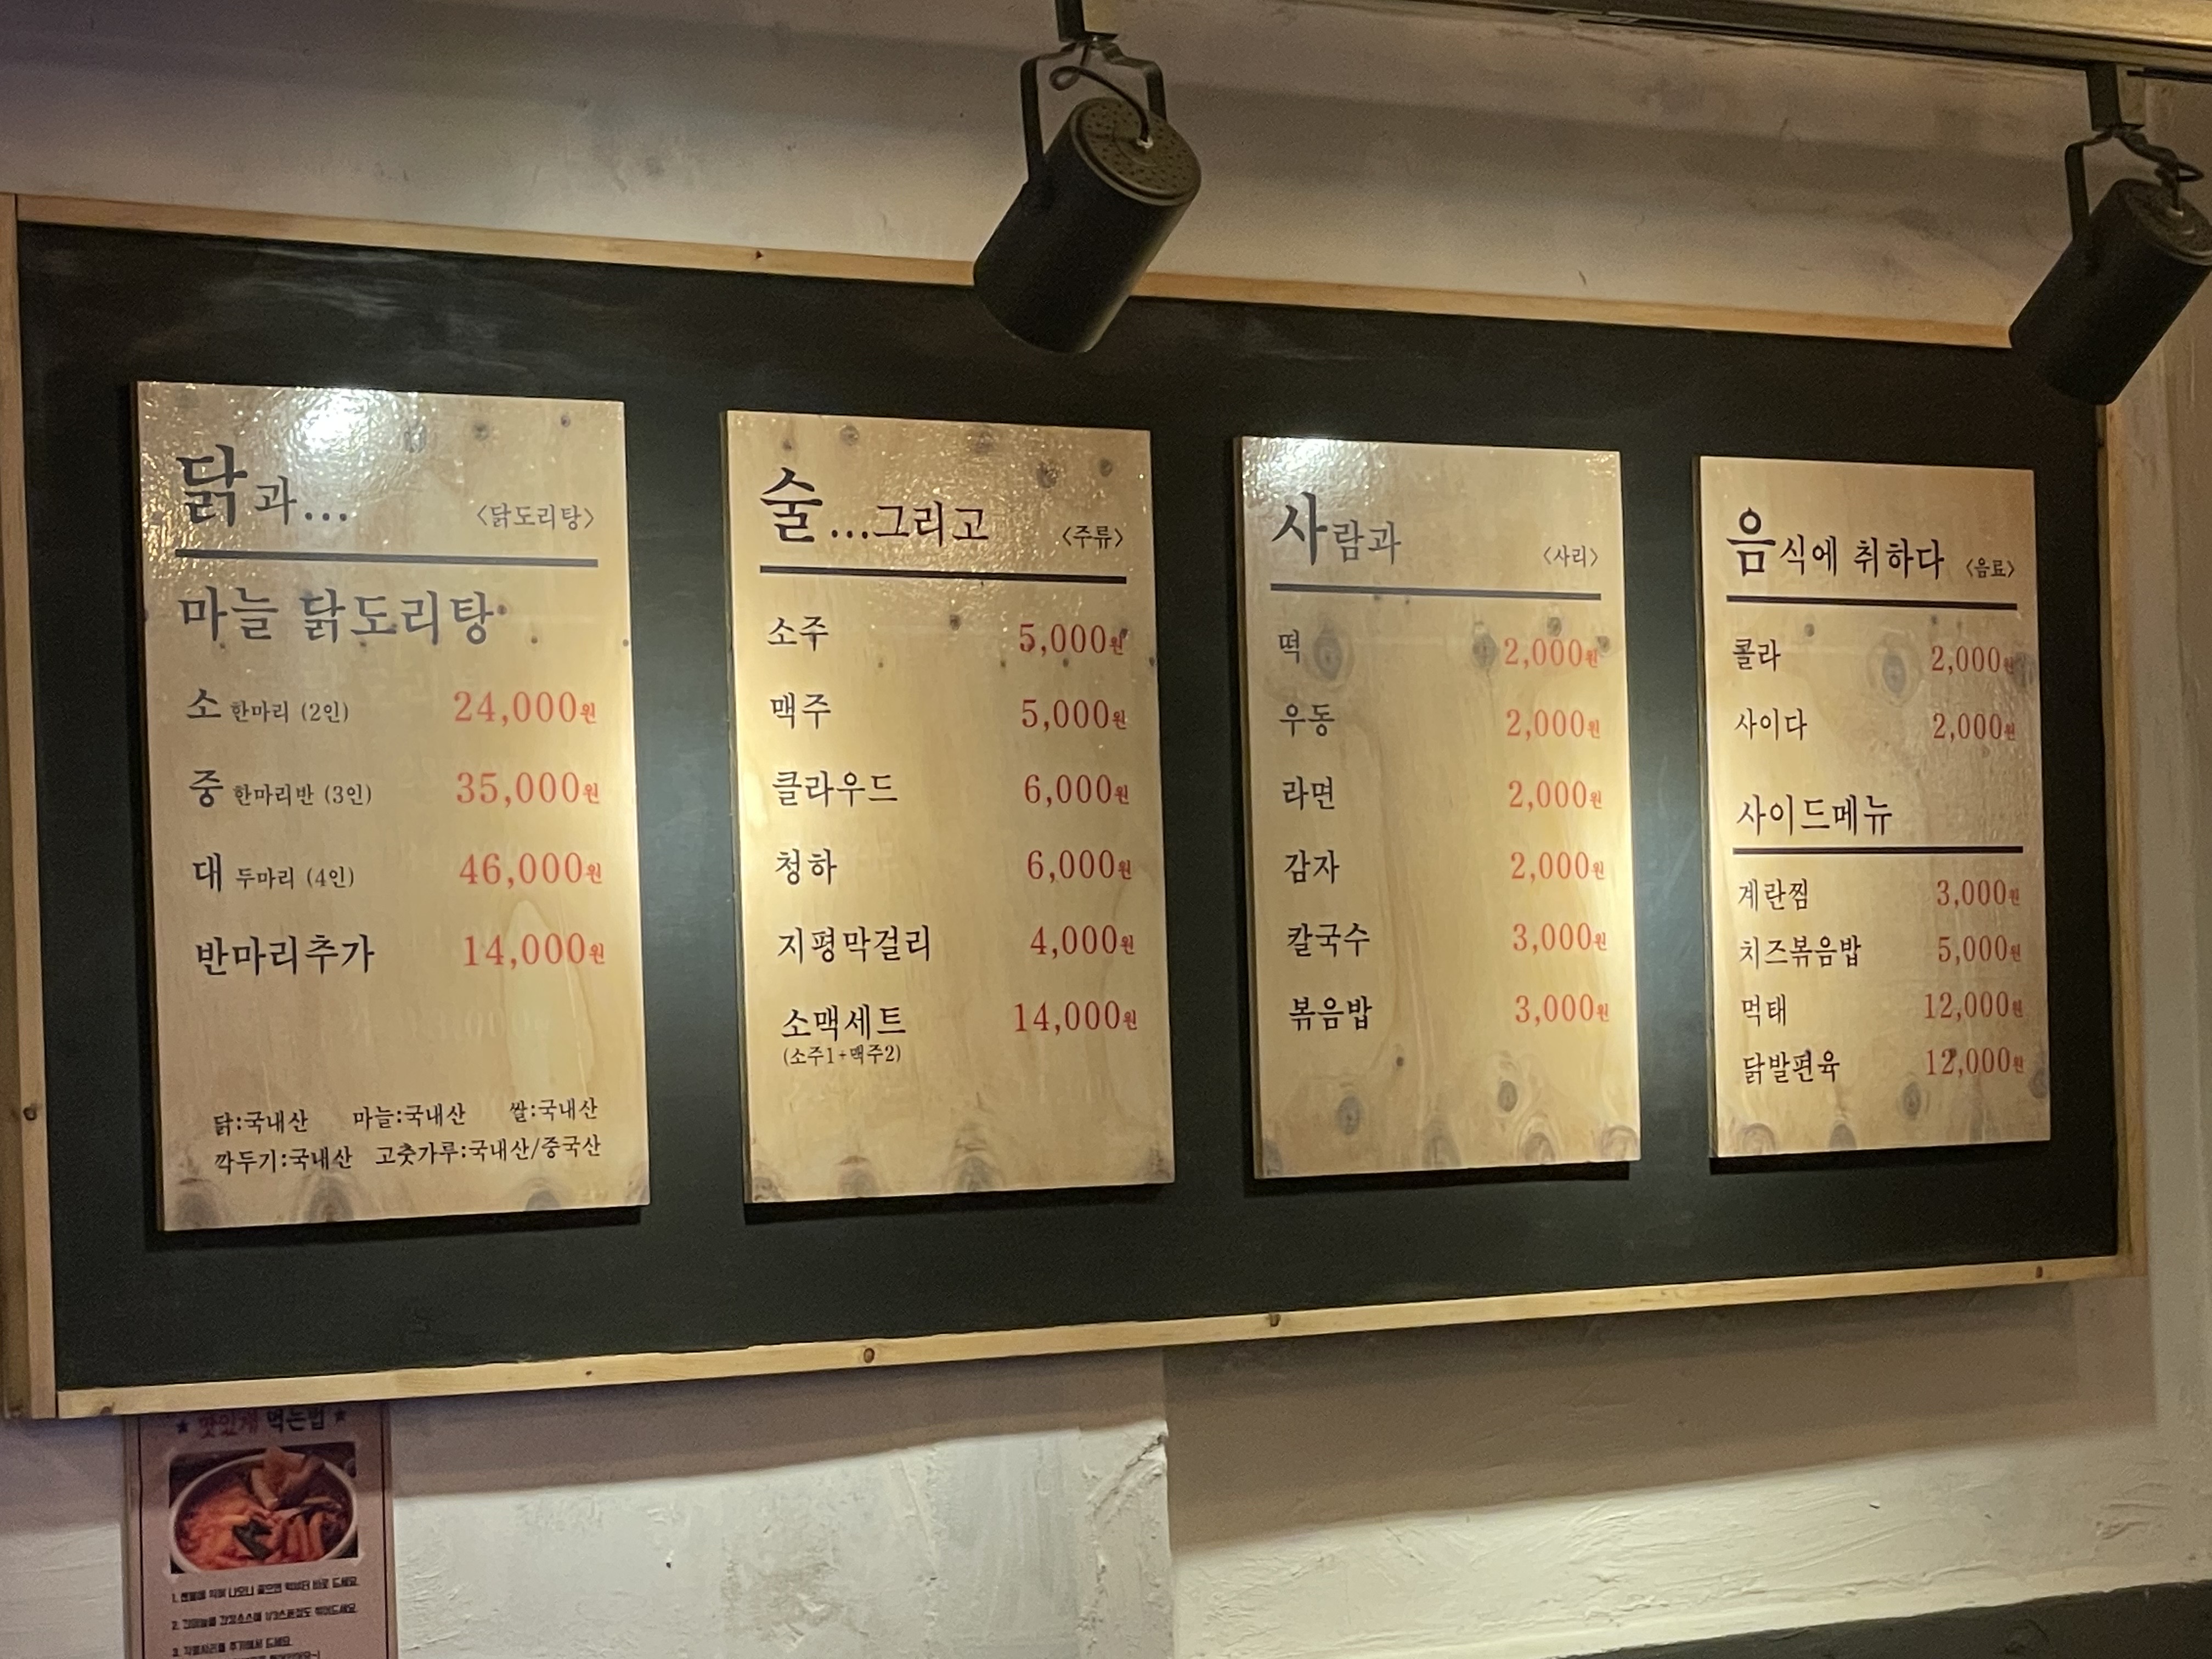 닭과... <닭도리탕>
마늘 닭도리탕
소 한마리 (2인) 24,000원
중 한마리반 (3인) 35,000원
대 두마리 (4인) 46,000원
반마리추가 14,000원
닭:국내산 마늘:국내산 쌀:국내산
깍두기:국내산 고춧가루:국내산/중국산
술...그리고 <주류>
소주 5,000원
맥주 5,000원
클라우드 6,000원
청하 6,000원
지평막걸리 4,000원
소맥세트 14,000원
(소주1+맥주2)
사람과 <사리>
떡 2,000원
우동 2,000원
라면 2,000원
감자 2,000원
칼국수 3,000원
볶음밥 3,000원
음식에 취하다 <음료>
콜라 2,000원
사이다 2,000원
사이드메뉴
계란찜 3,000원
치즈볶음밥 5,000원
먹태 12,000원
닭발편육 12,000원
맛있게 먹는법